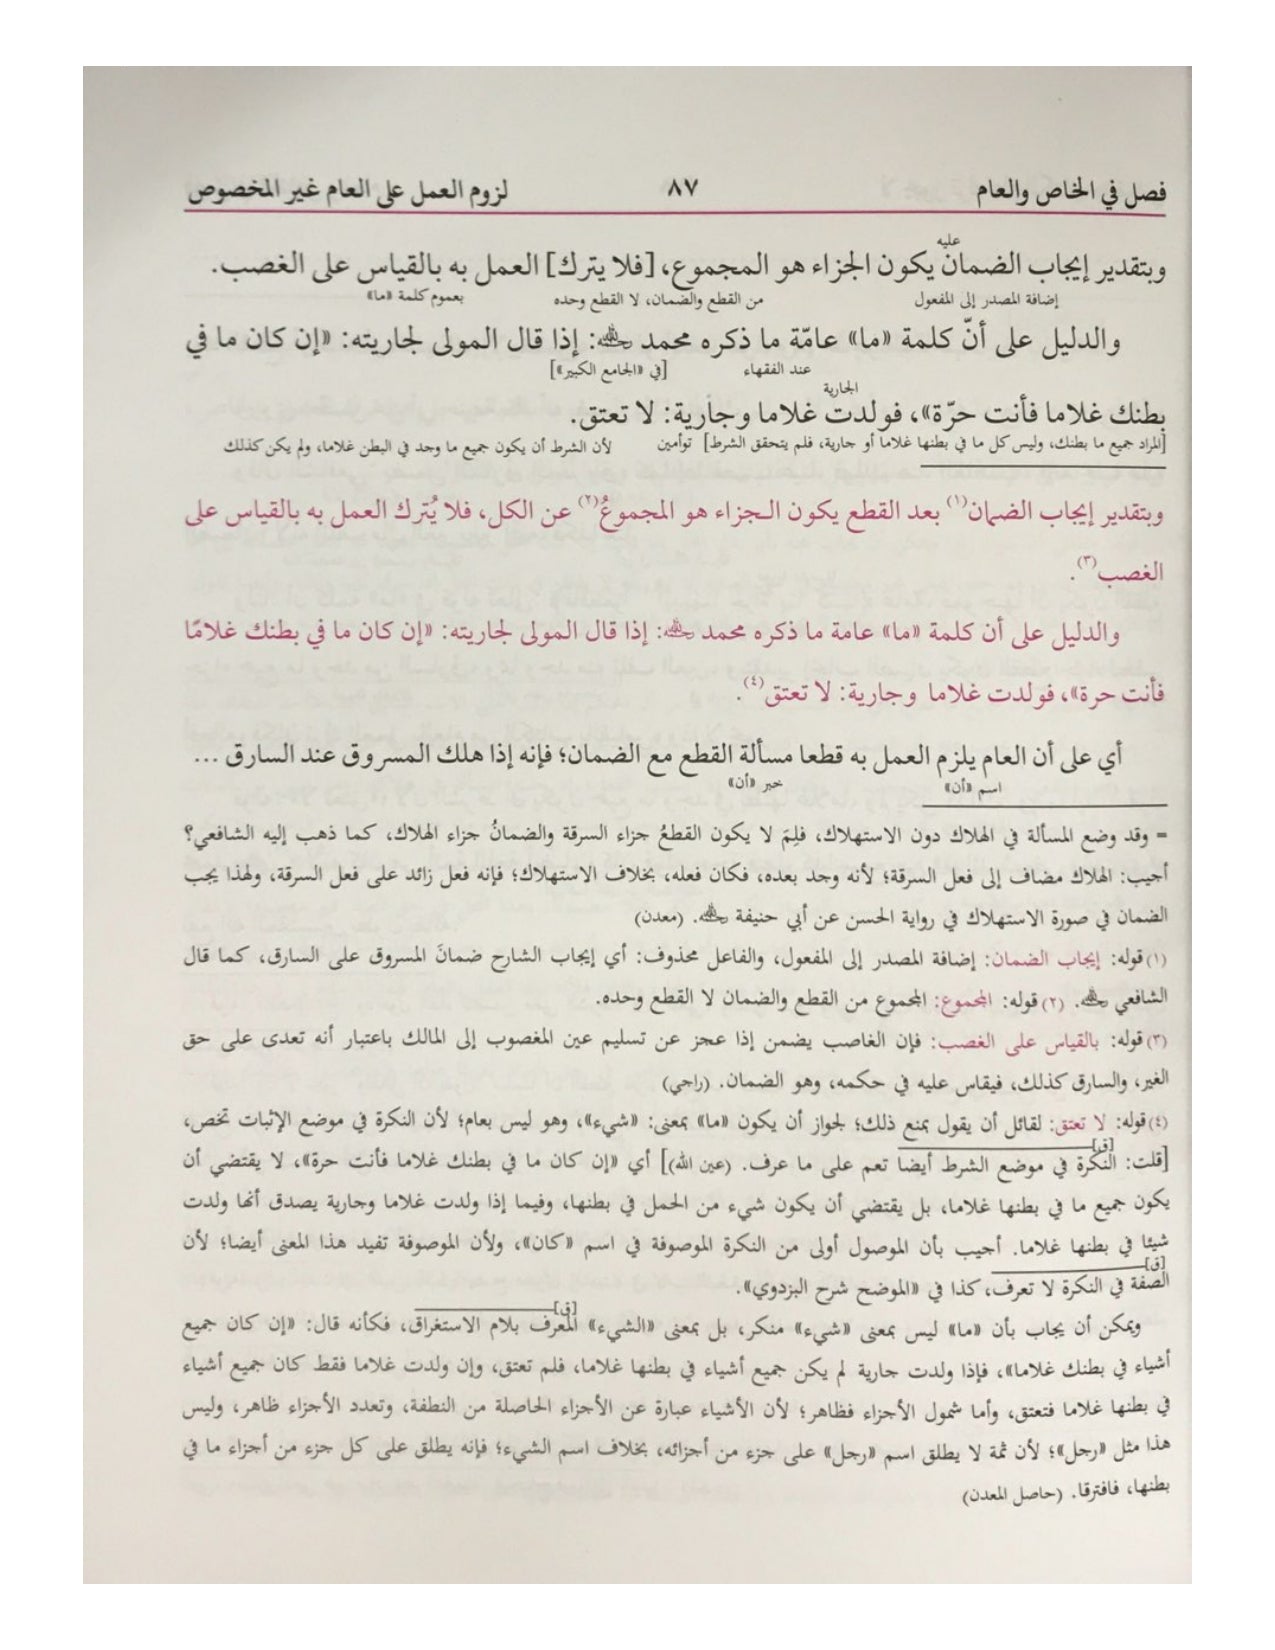 فصل في الخاص والعام ٨٧ لزوم العمل على العام غير المخصوص
عليه
وبتقدير إيجاب الضمان يكون الجزاء هو المجموع، [فلا يترك] العمل به بالقياس على الغصب.
إضافة المصدر إلى المفعول من القطع والضمان، لا القطع وحده بعموم كلمة «ما»
والدليل على أنّ كلمة «ما» عامّة ما ذكره محمد رحمه الله: إذا قال المولى لجاريته: «إن كان ما في
عند الفقهاء [في «الجامع الكبير»]
الجارية
بطنك غلاما فأنت حرّة»، فولدت غلاما وجارية: لا تعتق.
[المراد جميع ما بطنك، وليس كل ما في بطنها غلاما أو جارية، فلم يتحقق الشرط] توأمين لأن الشرط أن يكون جميع ما وجد في البطن غلاما، ولم يكن كذلك
وبتقدير إيجاب الضمان(١) بعد القطع يكون الجزاء هو المجموعُ(٢) عن الكل، فلا يُترك العمل به بالقياس على
الغصب(٣).
والدليل على أن كلمة «ما» عامة ما ذكره محمد رحمه الله: إذا قال المولى لجاريته: «إن كان ما في بطنك غلامًا
فأنت حرة»، فولدت غلاما وجارية: لا تعتق(٤).
أي على أن العام يلزم العمل به قطعا مسألة القطع مع الضمان؛ فإنه إذا هلك المسروق عند السارق ...
اسم «أن» خبر «أن»
= وقد وضع المسألة في الهلاك دون الاستهلاك، فلِمَ لا يكون القطعُ جزاء السرقة والضمانُ جزاء الهلاك، كما ذهب إليه الشافعي؟
أجيب: الهلاك مضاف إلى فعل السرقة؛ لأنه وجد بعده، فكان فعله، بخلاف الاستهلاك؛ فإنه فعل زائد على فعل السرقة، ولهذا يجب
الضمان في صورة الاستهلاك في رواية الحسن عن أبي حنيفة رحمه الله. (معدن)
(١) قوله: إيجاب الضمان: إضافة المصدر إلى المفعول، والفاعل محذوف: أي إيجاب الشارح ضمانَ المسروق على السارق، كما قال
الشافعي رحمه الله. (٢) قوله: المجموع: المجموع من القطع والضمان لا القطع وحده.
(٣) قوله: بالقياس على الغصب: فإن الغاصب يضمن إذا عجز عن تسليم عين المغصوب إلى المالك باعتبار أنه تعدى على حق
الغير، والسارق كذلك، فيقاس عليه في حكمه، وهو الضمان. (راجي)
(٤) قوله: لا تعتق: لقائل أن يقول بمنع ذلك؛ لجواز أن يكون «ما» بمعنى: «شيء»، وهو ليس بعام؛ لأن النكرة في موضع الإثبات تخص،
[ق]
[قلت: النكرة في موضع الشرط أيضا تعم على ما عرف. (عين الله)] أي «إن كان ما في بطنك غلاما فأنت حرة»، لا يقتضي أن
يكون جميع ما في بطنها غلاما، بل يقتضي أن يكون شيء من الحمل في بطنها، وفيما إذا ولدت غلاما وجارية يصدق أنها ولدت
شيئا في بطنها غلاما. أجيب بأن الموصول أولى من النكرة الموصوفة في اسم «كان»، ولأن الموصوفة تفيد هذا المعنى أيضا؛ لأن
[ق]
الصفة في النكرة لا تعرف، كذا في «الموضح شرح البزدوي».
[ق]
ويمكن أن يجاب بأن «ما» ليس بمعنى «شيء» منكر، بل بمعنى «الشيء» المعرف بلام الاستغراق، فكأنه قال: «إن كان جميع
أشياء في بطنك غلاما»، فإذا ولدت جارية لم يكن جميع أشياء في بطنها غلاما، فلم تعتق، وإن ولدت غلاما فقط كان جميع أشياء
في بطنها غلاما فتعتق، وأما شمول الأجزاء فظاهر؛ لأن الأشياء عبارة عن الأجزاء الحاصلة من النطفة، وتعدد الأجزاء ظاهر، وليس
هذا مثل «رجل»؛ لأن ثمة لا يطلق اسم «رجل» على جزء من أجزائه، بخلاف اسم الشيء؛ فإنه يطلق على كل جزء من أجزاء ما في
بطنها، فافترقا. (حاصل المعدن)